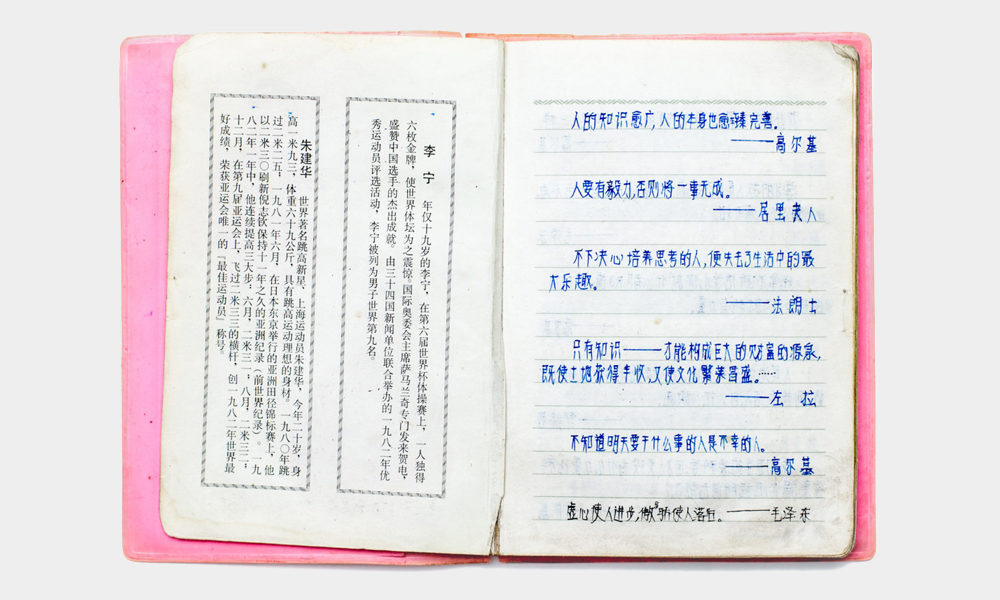 李 宁 年仅十九岁的李宁，在第六届世界杯体操赛上，一人独得
六枚金牌，使世界体坛为之震惊，国际奥委会主席萨马兰奇专门发来贺电，
盛赞中国选手的杰出成就。由三十四国新闻单位联合举办的一九八二年优
秀运动员评选活动，李宁被列为男子世界第九名。
朱建华 世界著名跳高新星、上海运动员朱建华，今年二十岁，身
高一米九三，体重六十九公斤，具有跳高运动理想的身材。一九八〇年跳
过二米二五，一九八一年六月，在日本东京举行的亚洲田径锦标赛上，他
以二米三〇刷新倪志钦保持十一年之久的亚洲纪录（前世界纪录）。一九
八二年一年中，他连续提高三大步：六月，二米三一，八月，二米三二，
十二月，在第九届亚运会上，飞过二米三三的横杆，创一九八二年世界最
好成绩，荣获亚运会唯一的「最佳运动员」称号。
人的知识愈广,人的本身也愈臻完善。
———高尔基
人要有毅力,否则将一事无成。
———居里夫人
不下决心培养思考的人,便失去了生活中的最
大乐趣。
———法朗士
只有知识———才能构成巨大的财富的源泉,
既使土地获得丰收,又使文化繁荣昌盛。……
———左拉
不知道明天要干什么事的人是不幸的人。
———高尔基
虚心使人进步,傲骄使人落后。———毛泽东